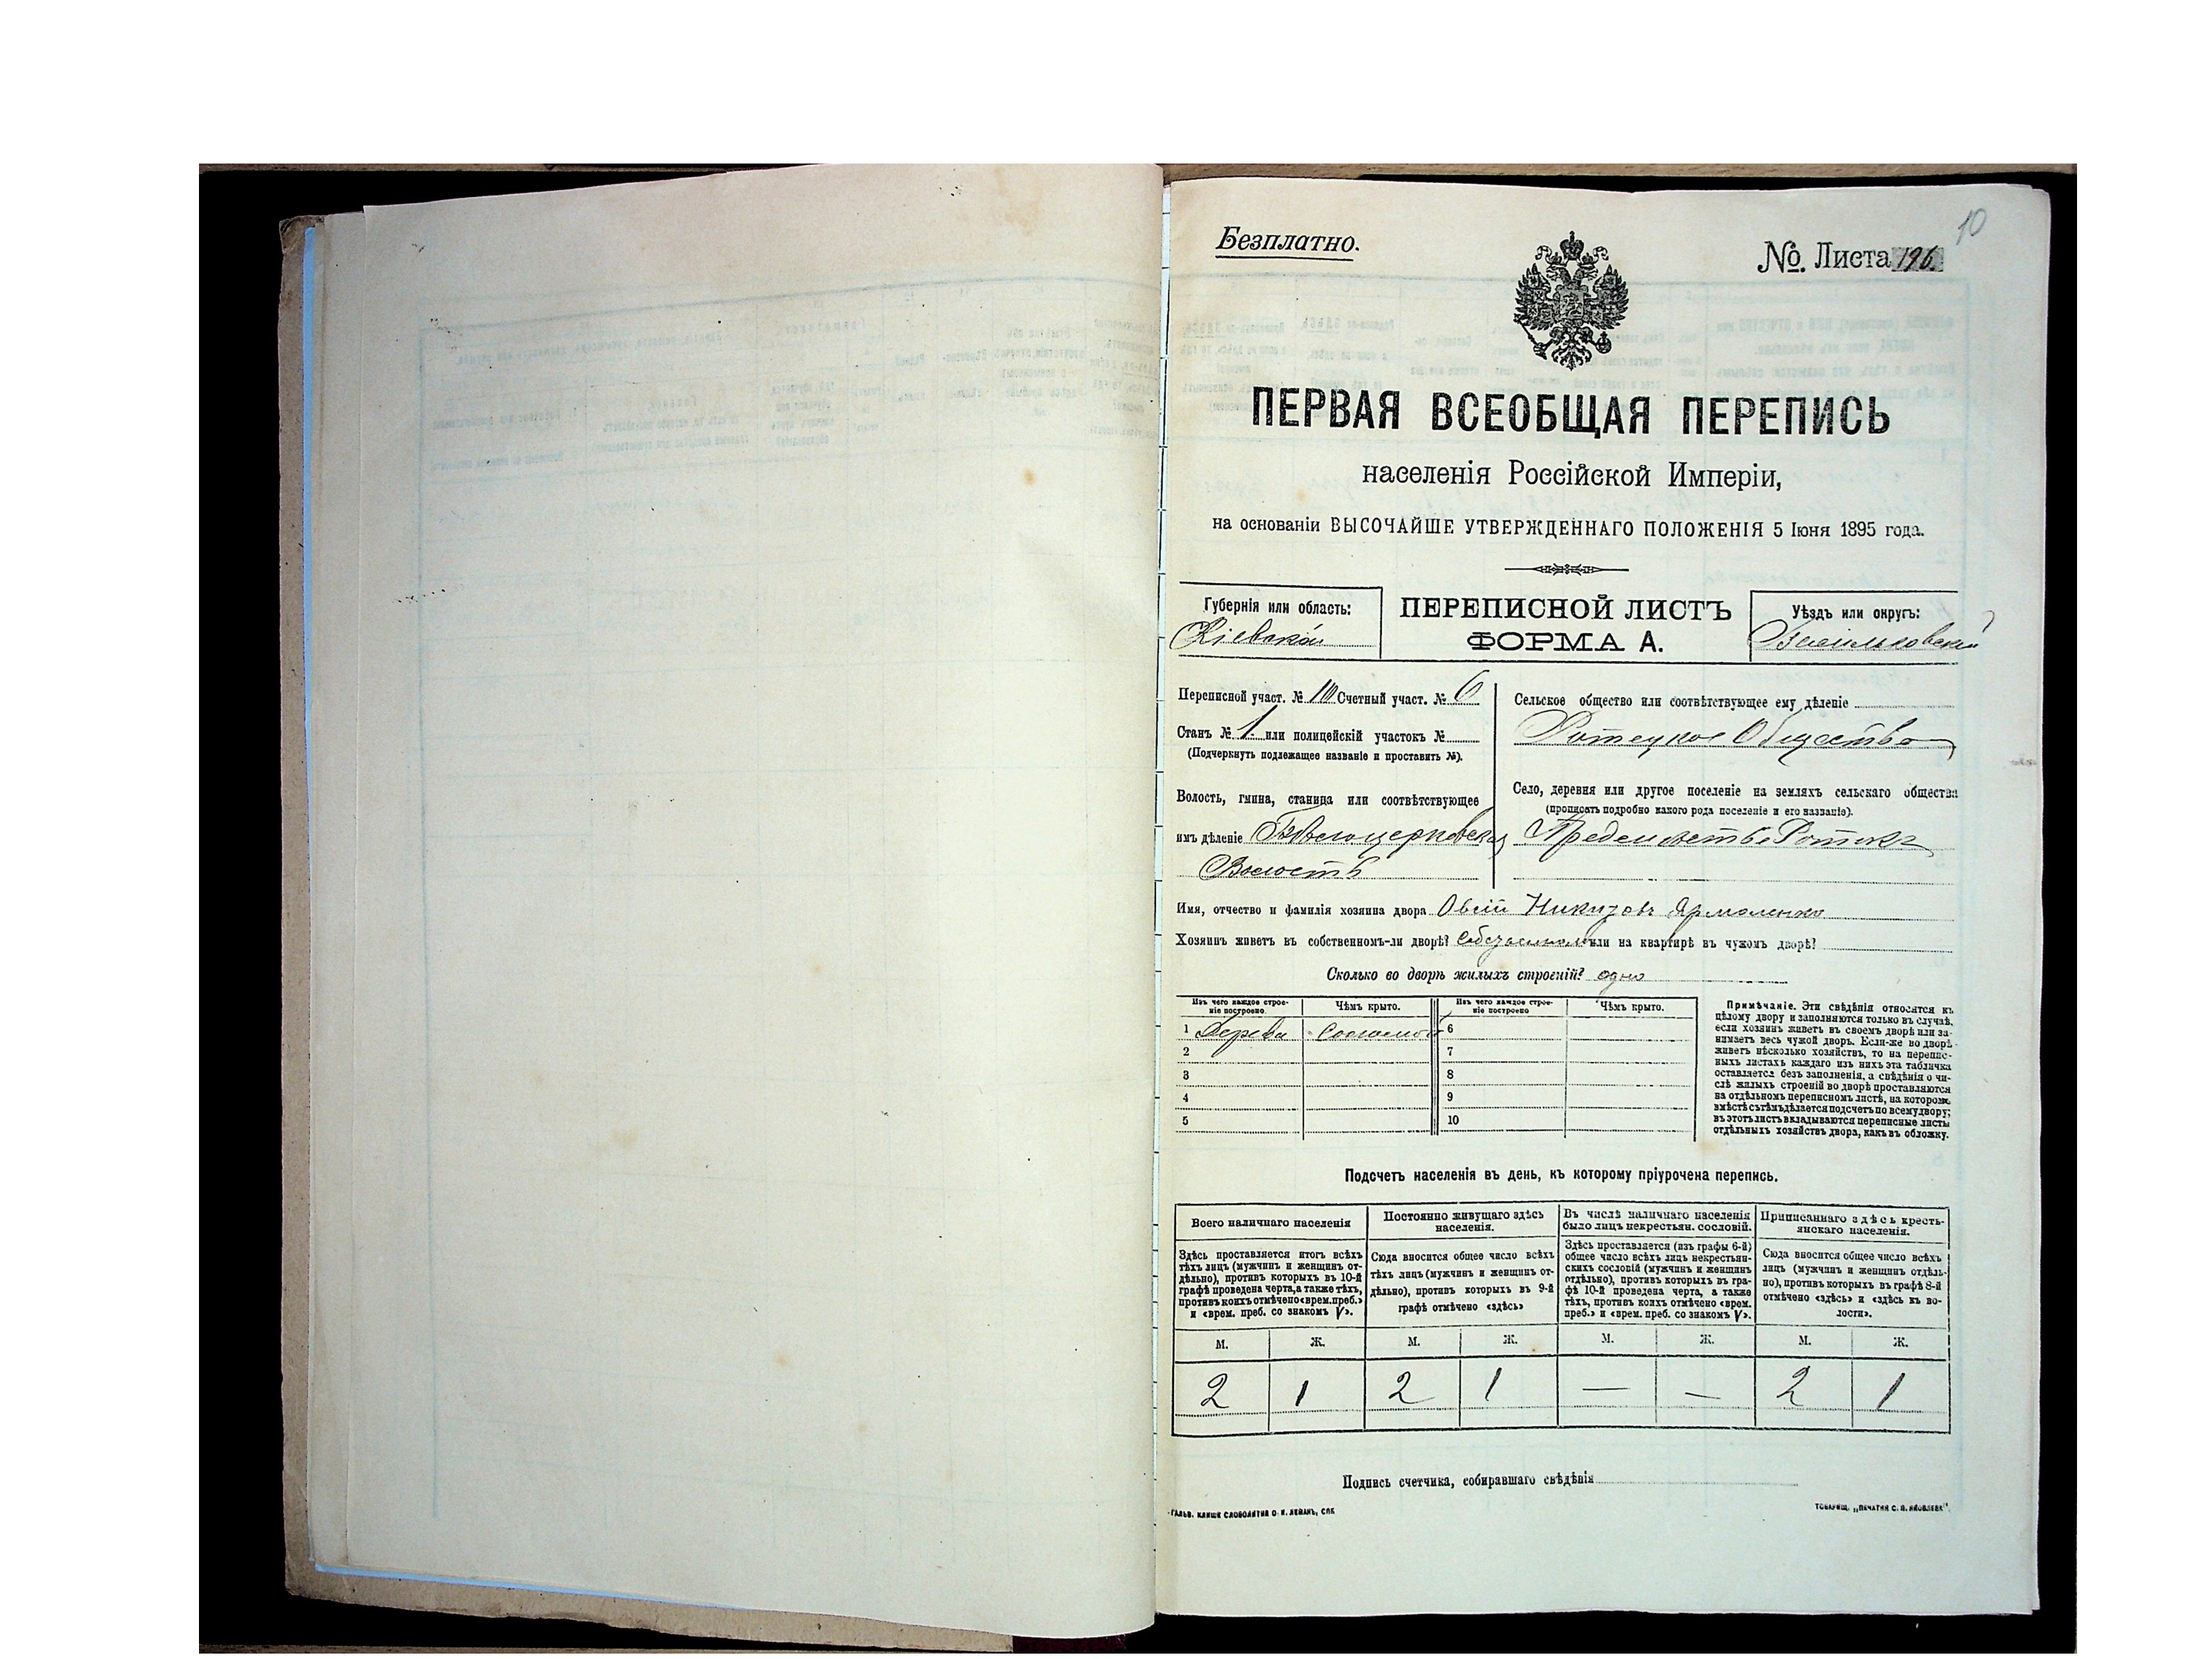 10
Безплатно.
№. Листа 196.
ПЕРВАЯ ВСЕОБЩАЯ ПЕРЕПИСЬ
населенія Россійской Имперіи,
на основаніи ВЫСОЧАЙШЕ УТВЕРЖДЕННАГО ПОЛОЖЕНІЯ 5 Іюня 1895 года.
Губернія или область:
Кіевская
ПЕРЕПИСНОЙ ЛИСТЪ
ФОРМА А.
Уѣздъ или округъ:
Васильковскій
Переписной участ. № 10 Счетный участ. № 6
Станъ № 1. или полицейскій участокъ №
(Подчеркнуть подлежащее названіе и проставить №).
Волость, гмина, станица или соотвѣтствующее
имъ дѣленіе Бѣлоцерковская
Волость
Сельское общество или соотвѣтствующее ему дѣленіе
Ротецкое Общество
Село, деревня или другое поселеніе на земляхъ сельскаго общества
(прописать подробно какого рода поселеніе и его названіе).
Предмѣстье Ротокъ
Имя, отчество и фамилія хозяина двора Овсій Никитовъ Ярмоленко
Хозяинъ живетъ въ собственномъ-ли дворѣ? собственномъ или на квартирѣ въ чужомъ дворѣ?
Сколько во дворѣ жилыхъ строеній? одно
Изъ чего каждое строеніе построено
Чѣмъ крыто.
Изъ чего каждое строеніе построено
Чѣмъ крыто.
1 Дерева Соломой 6
2 7
3 8
4 9
5 10
Примѣчаніе. Эти свѣдѣнія относятся къ
цѣлому двору и заполняются только въ случаѣ,
если хозяинъ живетъ въ своемъ дворѣ или за-
нимаетъ весь чужой дворъ. Если-же во дворѣ
живетъ нѣсколько хозяйствъ, то на перепис-
ныхъ листахъ каждаго изъ нихъ эта табличка
оставляется безъ заполненія, а свѣдѣнія о чи-
слѣ жилыхъ строеній во дворѣ проставляются
на отдѣльномъ переписномъ листѣ, на которомъ
вмѣстѣ съ тѣмъ дѣлается подсчетъ по всему двору;
въ этотъ листъ вкладываются переписные листы
отдѣльныхъ хозяйствъ двора, какъ въ обложку.
Подсчетъ населенія въ день, къ которому пріурочена перепись.
Всего наличнаго населенія
Здѣсь проставляется итогъ всѣхъ
тѣхъ лицъ (мужчинъ и женщинъ от-
дѣльно), противъ которыхъ въ 10-й
графѣ проведена черта, а также тѣхъ,
противъ коихъ отмѣчено «врем. преб.»
и «врем. преб. со знакомъ V».
Постоянно живущаго здѣсь
населенія.
Сюда вносится общее число всѣхъ
тѣхъ лицъ (мужчинъ и женщинъ от-
дѣльно), противъ которыхъ въ 9-й
графѣ отмѣчено «здѣсь»
Въ числѣ наличнаго населенія
было лицъ некрестьян. сословій.
Здѣсь проставляется (изъ графы 6-й)
общее число всѣхъ лицъ некрестьян-
скихъ сословій (мужчинъ и женщинъ
отдѣльно), противъ которыхъ въ гра-
фѣ 10-й проведена черта, а также
тѣхъ, противъ коихъ отмѣчено «врем.
преб.» и «врем. преб. со знакомъ V».
Приписаннаго здѣсь кресть-
янскаго населенія.
Сюда вносится общее число всѣхъ
лицъ (мужчинъ и женщинъ отдѣль-
но), противъ которыхъ въ графѣ 8-й
отмѣчено «здѣсь» и «здѣсь къ во-
лости».
М. Ж. М. Ж. М. Ж. М. Ж.
2 1 2 1 — — 2 1
Подпись счетчика, собиравшаго свѣдѣнія
ГАЛЬВ. КЛИШЕ СЛОВОЛИТНИ О. И. ЛЕМАНЪ, СПБ
ТОВАРИЩ. „ПЕЧАТНЯ С. П. ЯКОВЛЕВА".